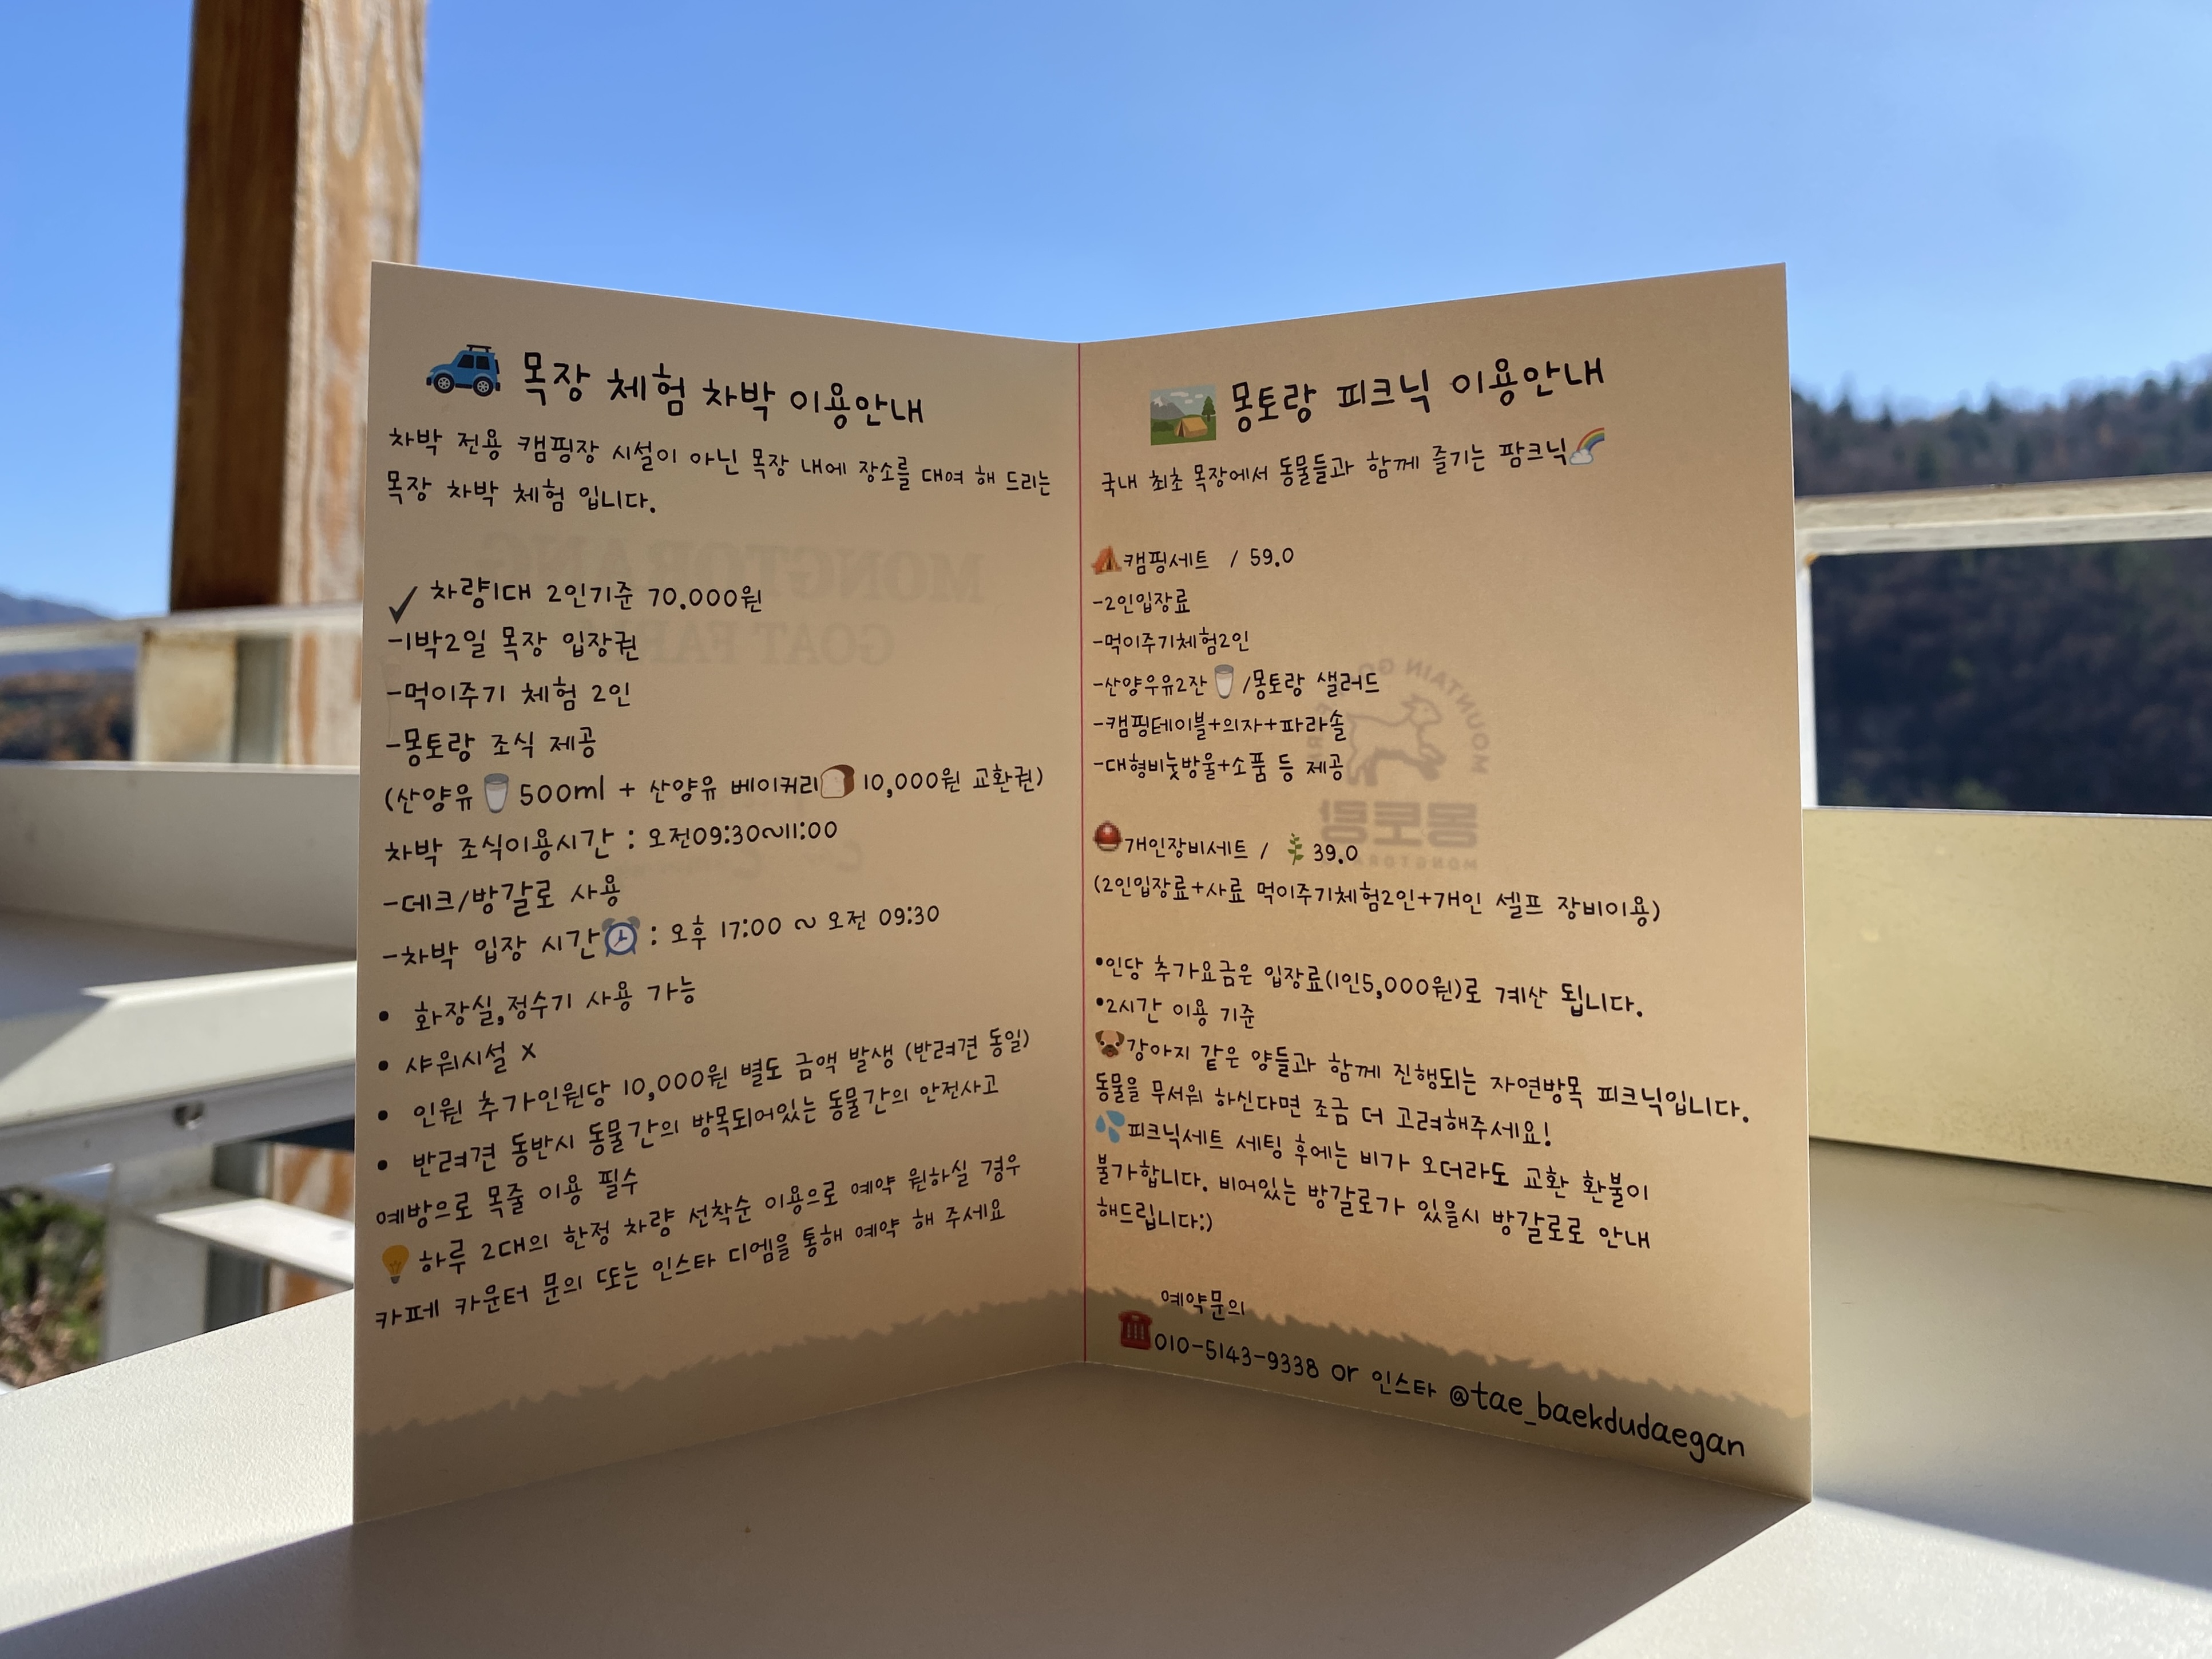 목장 체험 차박 이용안내
차박 전용 캠핑장 시설이 아닌 목장 내에 장소를 대여 해 드리는
목장 차박 체험 입니다.
✓ 차량1대 2인기준 70.000원
-1박2일 목장 입장권
-먹이주기 체험 2인
-몽토랑 조식 제공
(산양유🥛500ml + 산양유 베이커리🍞10,000원 교환권)
차박 조식이용시간 : 오전09:30~11:00
-데크/방갈로 사용
-차박 입장 시간⏰ : 오후 17:00 ~ 오전 09:30
• 화장실,정수기 사용 가능
• 샤워시설 X
• 인원 추가인원당 10,000원 별도 금액 발생 (반려견 동일)
• 반려견 동반시 동물간의 방목되어있는 동물간의 안전사고
예방으로 목줄 이용 필수
💡하루 2대의 한정 차량 선착순 이용으로 예약 원하실 경우
카페 카운터 문의 또는 인스타 디엠을 통해 예약 해 주세요
몽토랑 피크닉 이용안내
국내 최초 목장에서 동물들과 함께 즐기는 팜크닉🌈
⛺캠핑세트 / 59.0
-2인입장료
-먹이주기체험2인
-산양우유2잔🥛/몽토랑 샐러드
-캠핑테이블+의자+파라솔
-대형비눗방울+소품 등 제공
개인장비세트 / 🌿39.0
(2인입장료+사료 먹이주기체험2인+개인 셀프 장비이용)
•인당 추가요금은 입장료(1인5,000원)로 계산 됩니다.
•2시간 이용 기준
🐶강아지 같은 양들과 함께 진행되는 자연방목 피크닉입니다.
동물을 무서워 하신다면 조금 더 고려해주세요!
💦피크닉세트 세팅 후에는 비가 오더라도 교환 환불이
불가합니다. 비어있는 방갈로가 있을시 방갈로로 안내
해드립니다:)
예약문의
☎010-5143-9338 or 인스타 @tae_baekdudaegan
MONGTORANG
GOAT FARM
몽토랑